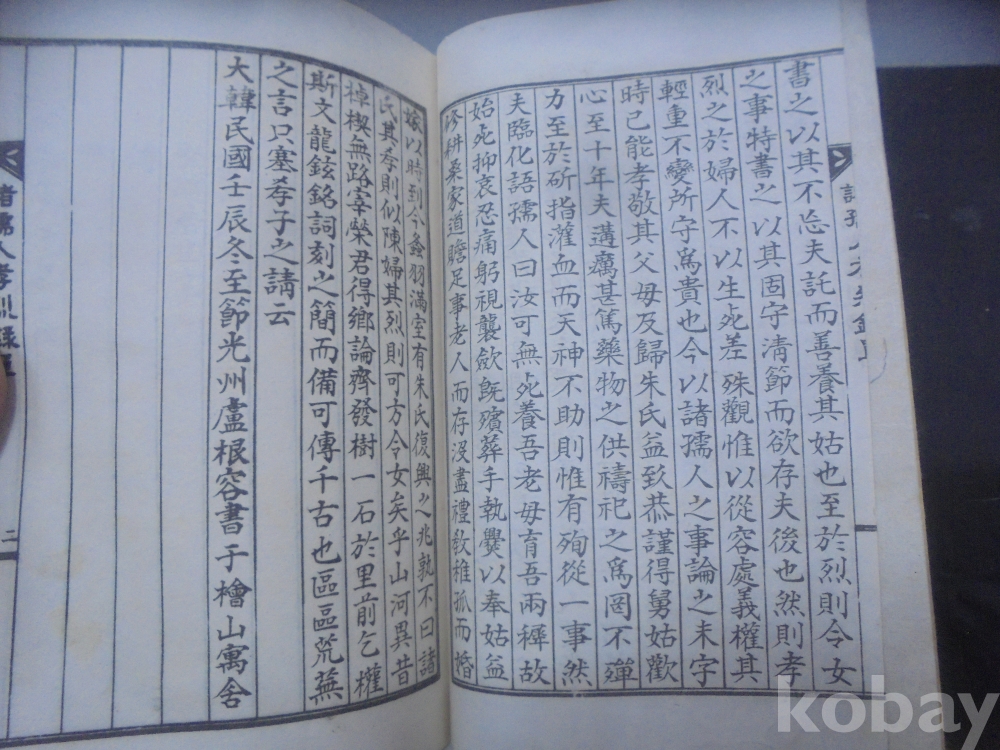 書之以其不忘夫託而善養其姑也至於烈則令女
之事特書之以其固守淸節而欲存夫後也然則孝
烈之於婦人不以生死差殊觀惟以從容處義權其
輕重不變所守爲貴也今以諸孺人之事論之未字
時已能孝敬其父母及歸朱氏益致恭謹得舅姑歡
心至十年夫遘癘甚篤藥物之供禱祀之爲罔不殫
力至於斫指灌血而天神不助則惟有殉從一事然
夫臨化語孺人曰汝可無死養吾老母育吾兩穉故
始死抑哀忍痛躬視襲斂旣殯葬手執爨以奉姑益
修耕桑家道贍足事老人而存沒盡禮敎稚孤而婚
嫁以時到今螽羽滿室有朱氏復興之兆孰不曰諸
氏其孝則似陳婦其烈則可方令女矣乎山河異昔
棹楔無路宰榮君得鄕論齊發樹一石於里前乞權
斯文龍鉉銘詞刻之簡而備可傳千古也區區荒蕪
之言只塞孝子之請云
大韓民國壬辰冬至節光州盧根容書于檜山寓舍
諸孺人孝烈錄
二
kobay